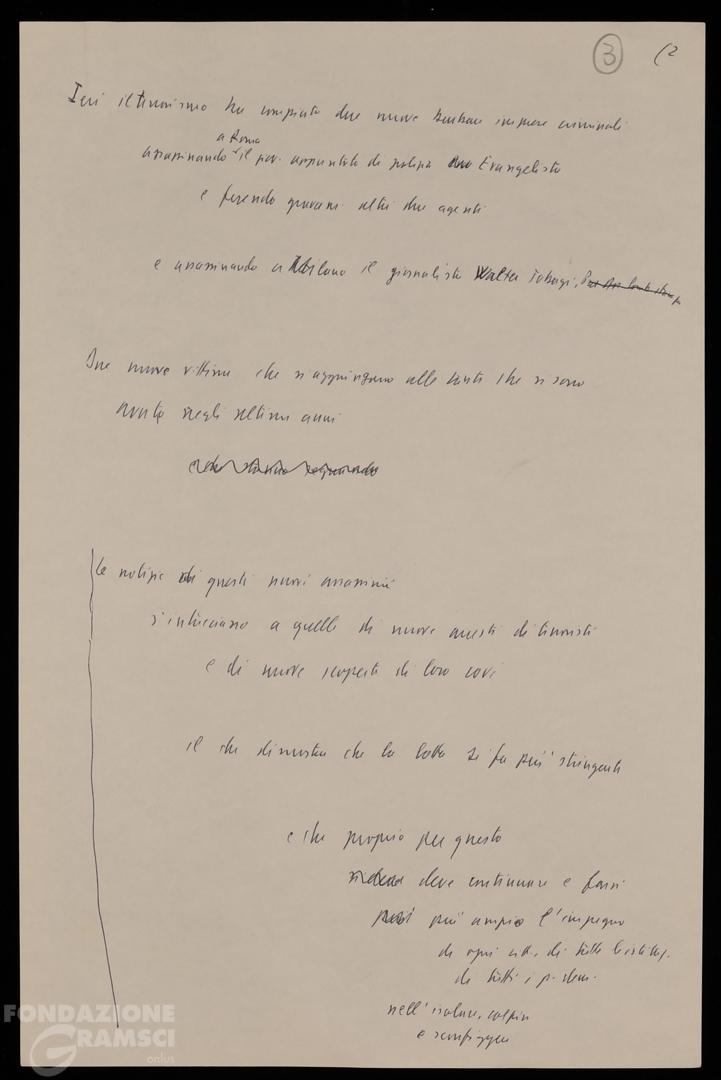 3 (2
Ieri il terrorismo ha compiuto due nuove barbare imprese criminali
a Roma
assassinando il gov. appuntato di polizia Evangelista
e ferendo gravem. altri due agenti
e assassinando a Milano il giornalista Walter Tobagi,
Due nuove vittime che si aggiungono alle tante che si sono
avute negli ultimi anni
Le notizie di questi nuovi assassinii
s'intrecciano a quelle di nuovi arresti di terroristi
e di nuove scoperte di loro covi
il che dimostra che la lotta si fa più stringente
e che proprio per questo
deve continuare e farsi
più ampio l'impegno
di ogni citt. di tutte le istituz.
di tutti i p. dem.
nell'isolare, colpire
e sconfiggere
FONDAZIONE
GRAMSCI
onlus